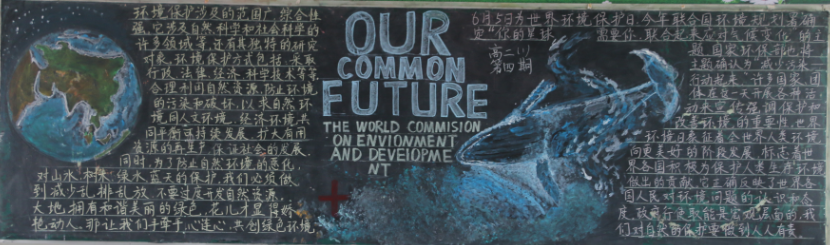 环境保护涉及的范围广、综合性
强,它涉及自然科学和社会科学的
许多领域等,还有其独特的研究
对象。环境保护方式包括:采取
行政、法律、经济、科学技术等等,
合理利用自然资源,防止环境
的污染和破坏,以求自然环
境同人文环境、经济环境共
同平衡可持续发展,扩大有用
资源的再生产,保证社会的发展。
同时,为了防止自然环境的恶化,
对山水、绿水、蓝天的保护,我们必须做
到减少乱排乱放,不要过度开发自然资源。
大地拥有和谐美丽的绿色,花儿才显得娇
艳动人,那让我们手牵手,心连心,共创绿色环境。
OUR
COMMON
FUTURE
THE WORLD COMMISION
ON ENVIONMENT
AND DEVEIOPME
NT
高二(1)
第四期
6月5日为世界环境保护日,今年联合国环境规划署确
定"您的星球 需要你,联合起来应对气候变化"的主
题,国家环保部也将
主题确认为"减少污染——
行动起来"许多国家、团
体在这一天开展各种活
动来宣传强调保护和
改善环境的重要性,世界
环境日象征着全世界人类环境
向更美好的阶段发展,标志着世
界各国积极为保护人类生存环境
做出的贡献。它正确反映了世界各
国人民对环境问题的认识和态
度。政府行
们对自然的保护